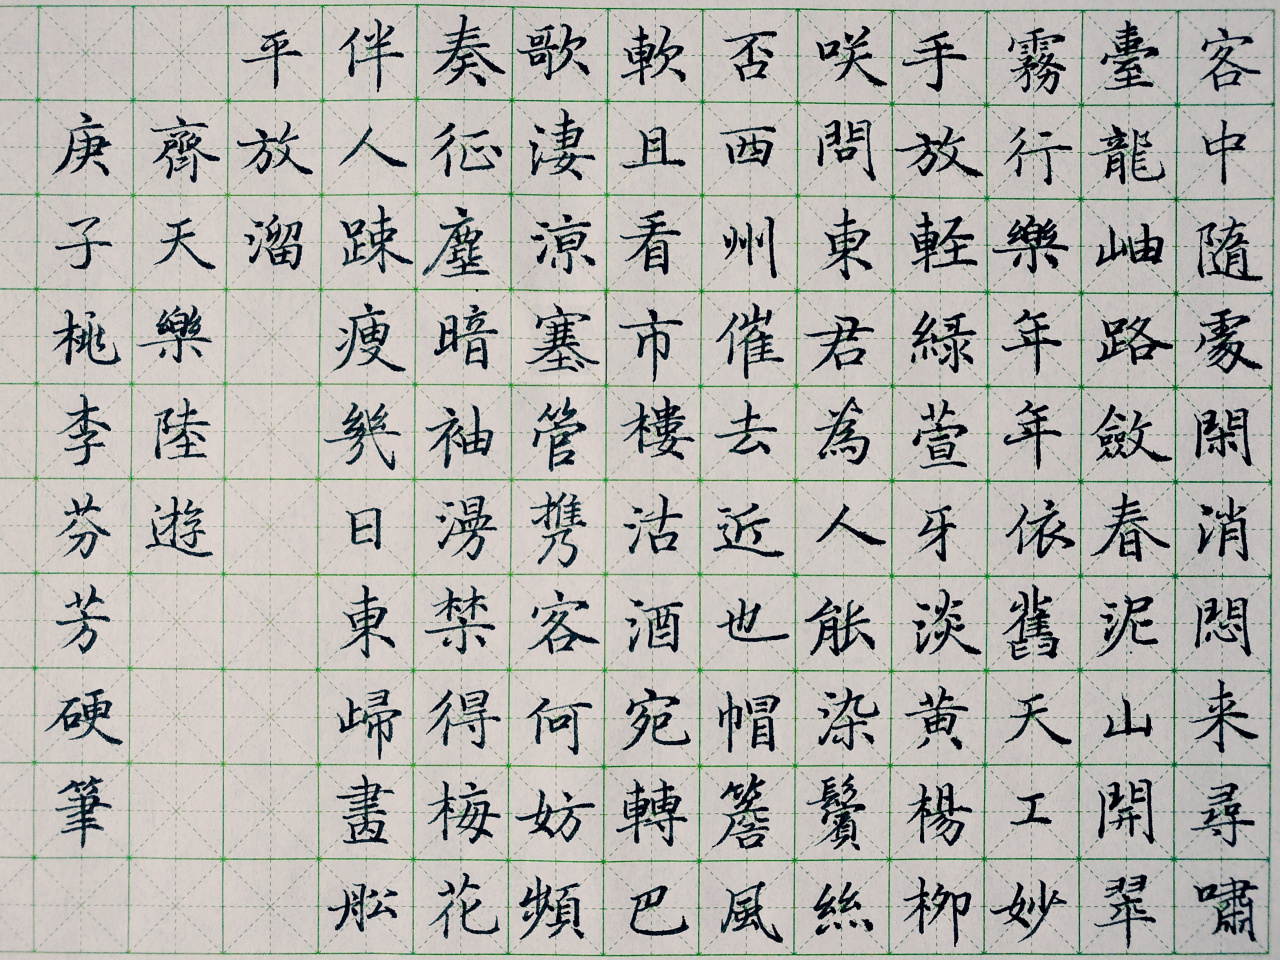 客中隨處閑消悶来尋嘯
臺龍岫路斂春泥山開翠
霧行樂年年依舊天工妙
手放軽綠萱牙淡黄楊柳
咲問東君為人能染鬢絲
否西州催去近也帽簷風
軟且看市樓沽酒宛轉巴
歌淒涼塞管攜客何妨頻
奏征塵暗袖漫禁得梅花
伴人踈瘦幾日東歸畫舩
平放溜
齊天樂陸遊
庚子桃李芬芳硬筆